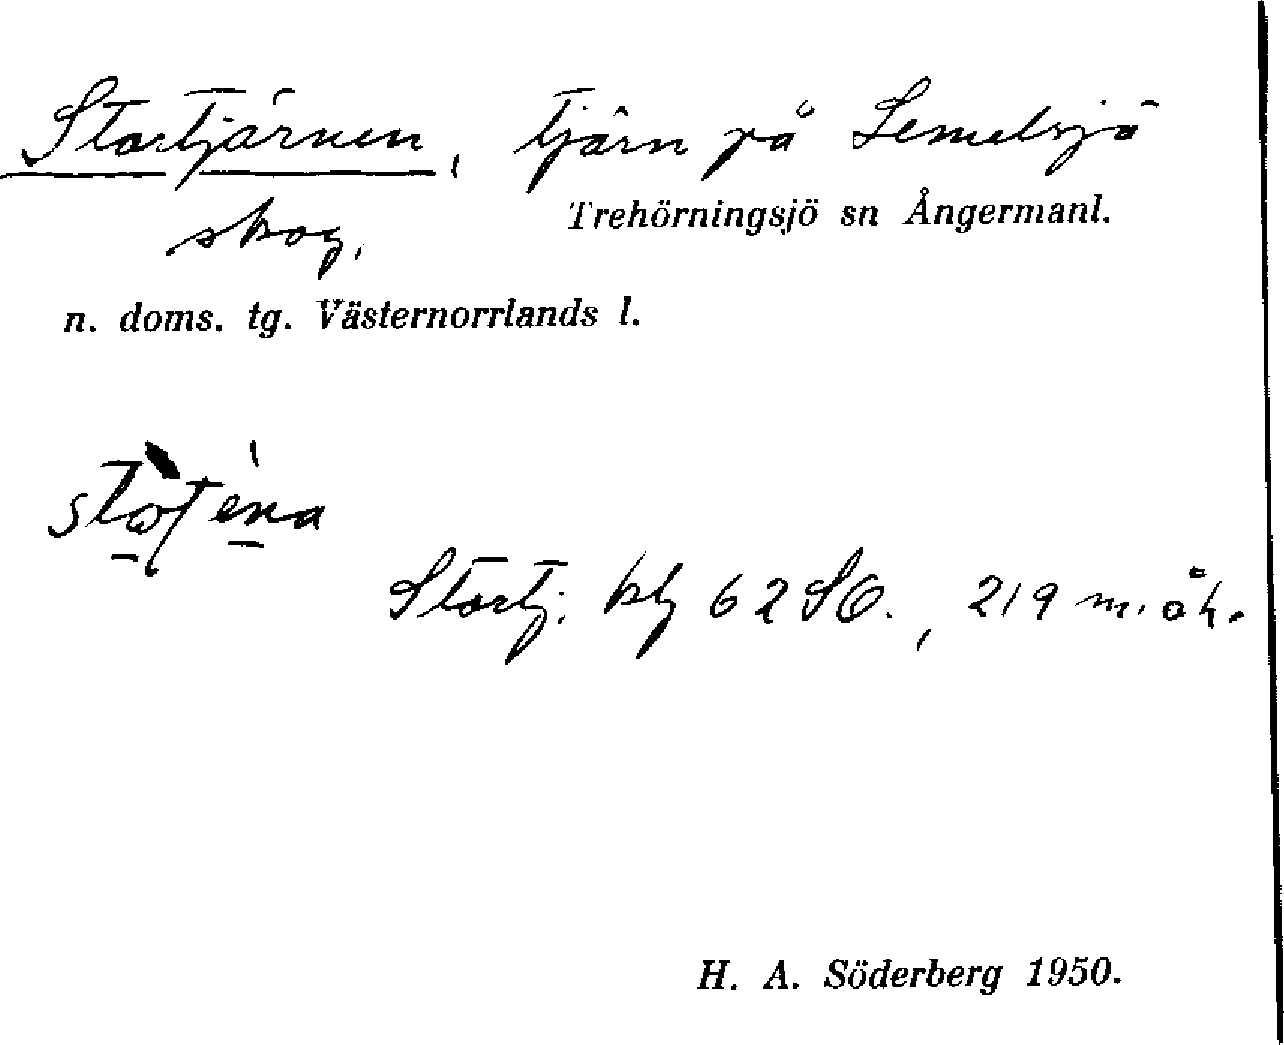 Stortjärnen, tjärn på Lemelsjö
Trehörningsjö sn Ångermanl.
skog.
n. doms. tg. Västernorrlands l.
Stortj. kbl 62 SO., 219 m. öh.
H. A. Söderberg 1950.